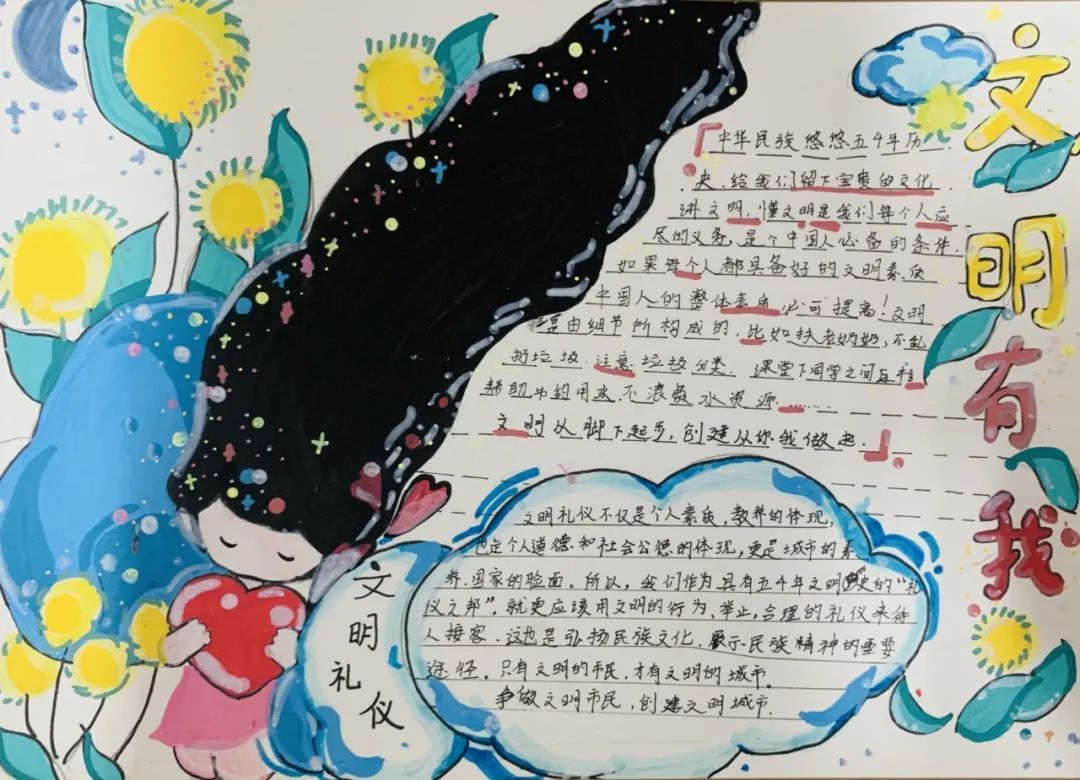 文明有我
「中华民族悠悠五千年历
史.给我们留下宝贵的文化
讲文明,懂文明是我们每个人应
尽的义务,是个中国人必备的条件.
如果每个人都具备好的文明素质
中国人的整体素质必可提高!文明
是由细节所构成的,比如扶老奶奶,不乱
扔垃圾.注意垃圾分类.课堂下同学之间互相
帮助节约用水不浪费水资源.......
文明从脚下起步,创建从你我做起.」
文明礼仪
文明礼仪不仅是个人素质,教养的体现,
也是个人道德和社会公德的体现,更是城市的素
养.国家的脸面。所以,我们作为具有五千年文明史的“礼
仪之邦”,就更应该用文明的行为、举止,合理的礼仪来待
人接客.这也是弘扬民族文化.展示民族精神的重要
途径。只有文明的市民,才有文明的城市.
争做文明市民,创建文明城市.